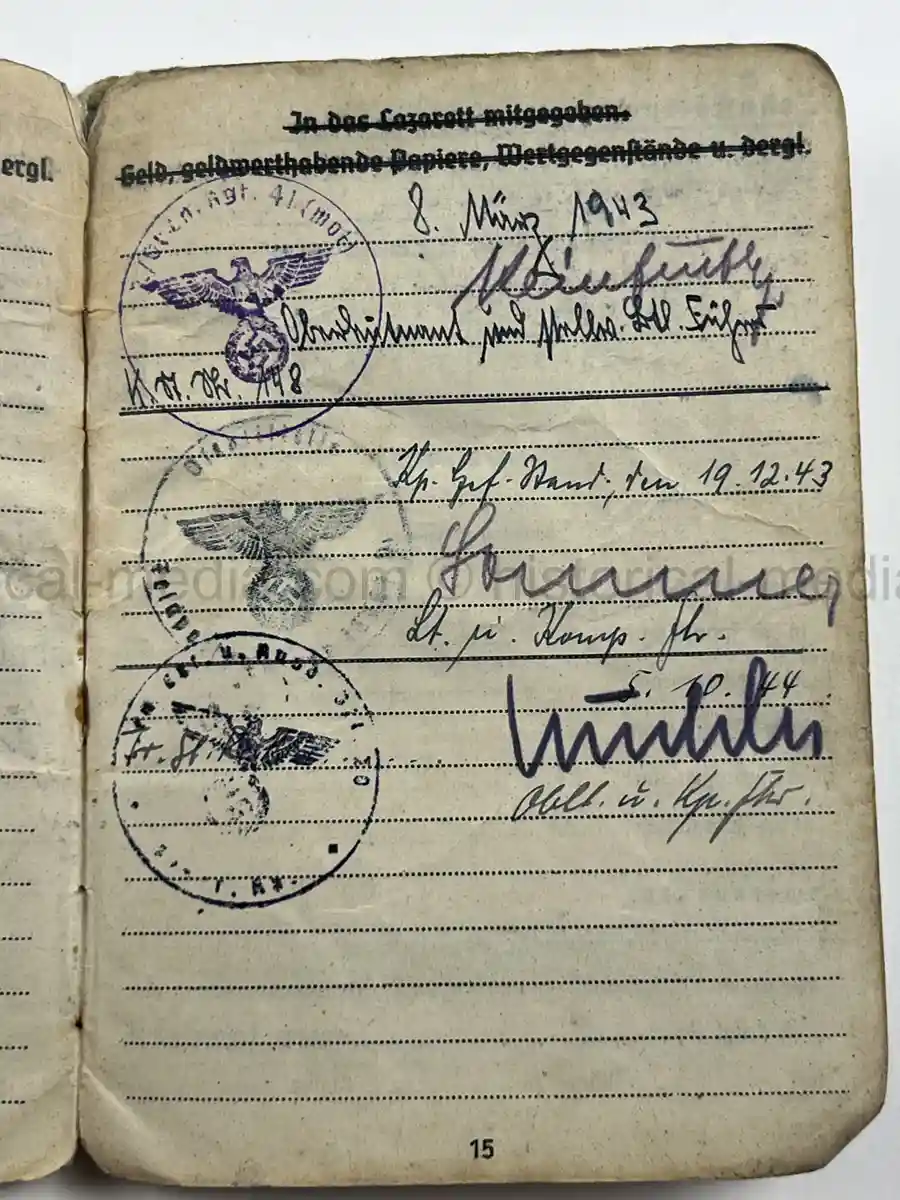 ergl.
In das Lazarett mitgegeben.
Geld, geldwerthabende Papiere, Wertgegenstände u. dergl.
Gren. Rgt. 41 (mot)
8. März 1943
Oberleutnant und stellv. Btl. Führer
K. St. Nr. 148
Dienststelle
Feldpo
Kp. Gef. Stand, den 19.12.43
Sommer
Lt. u. Komp. Fhr.
Ers. u. Ausb.
5. 10. 44
Oblt. u. Kp. Fhr.
cal-media.com © historical-media
15